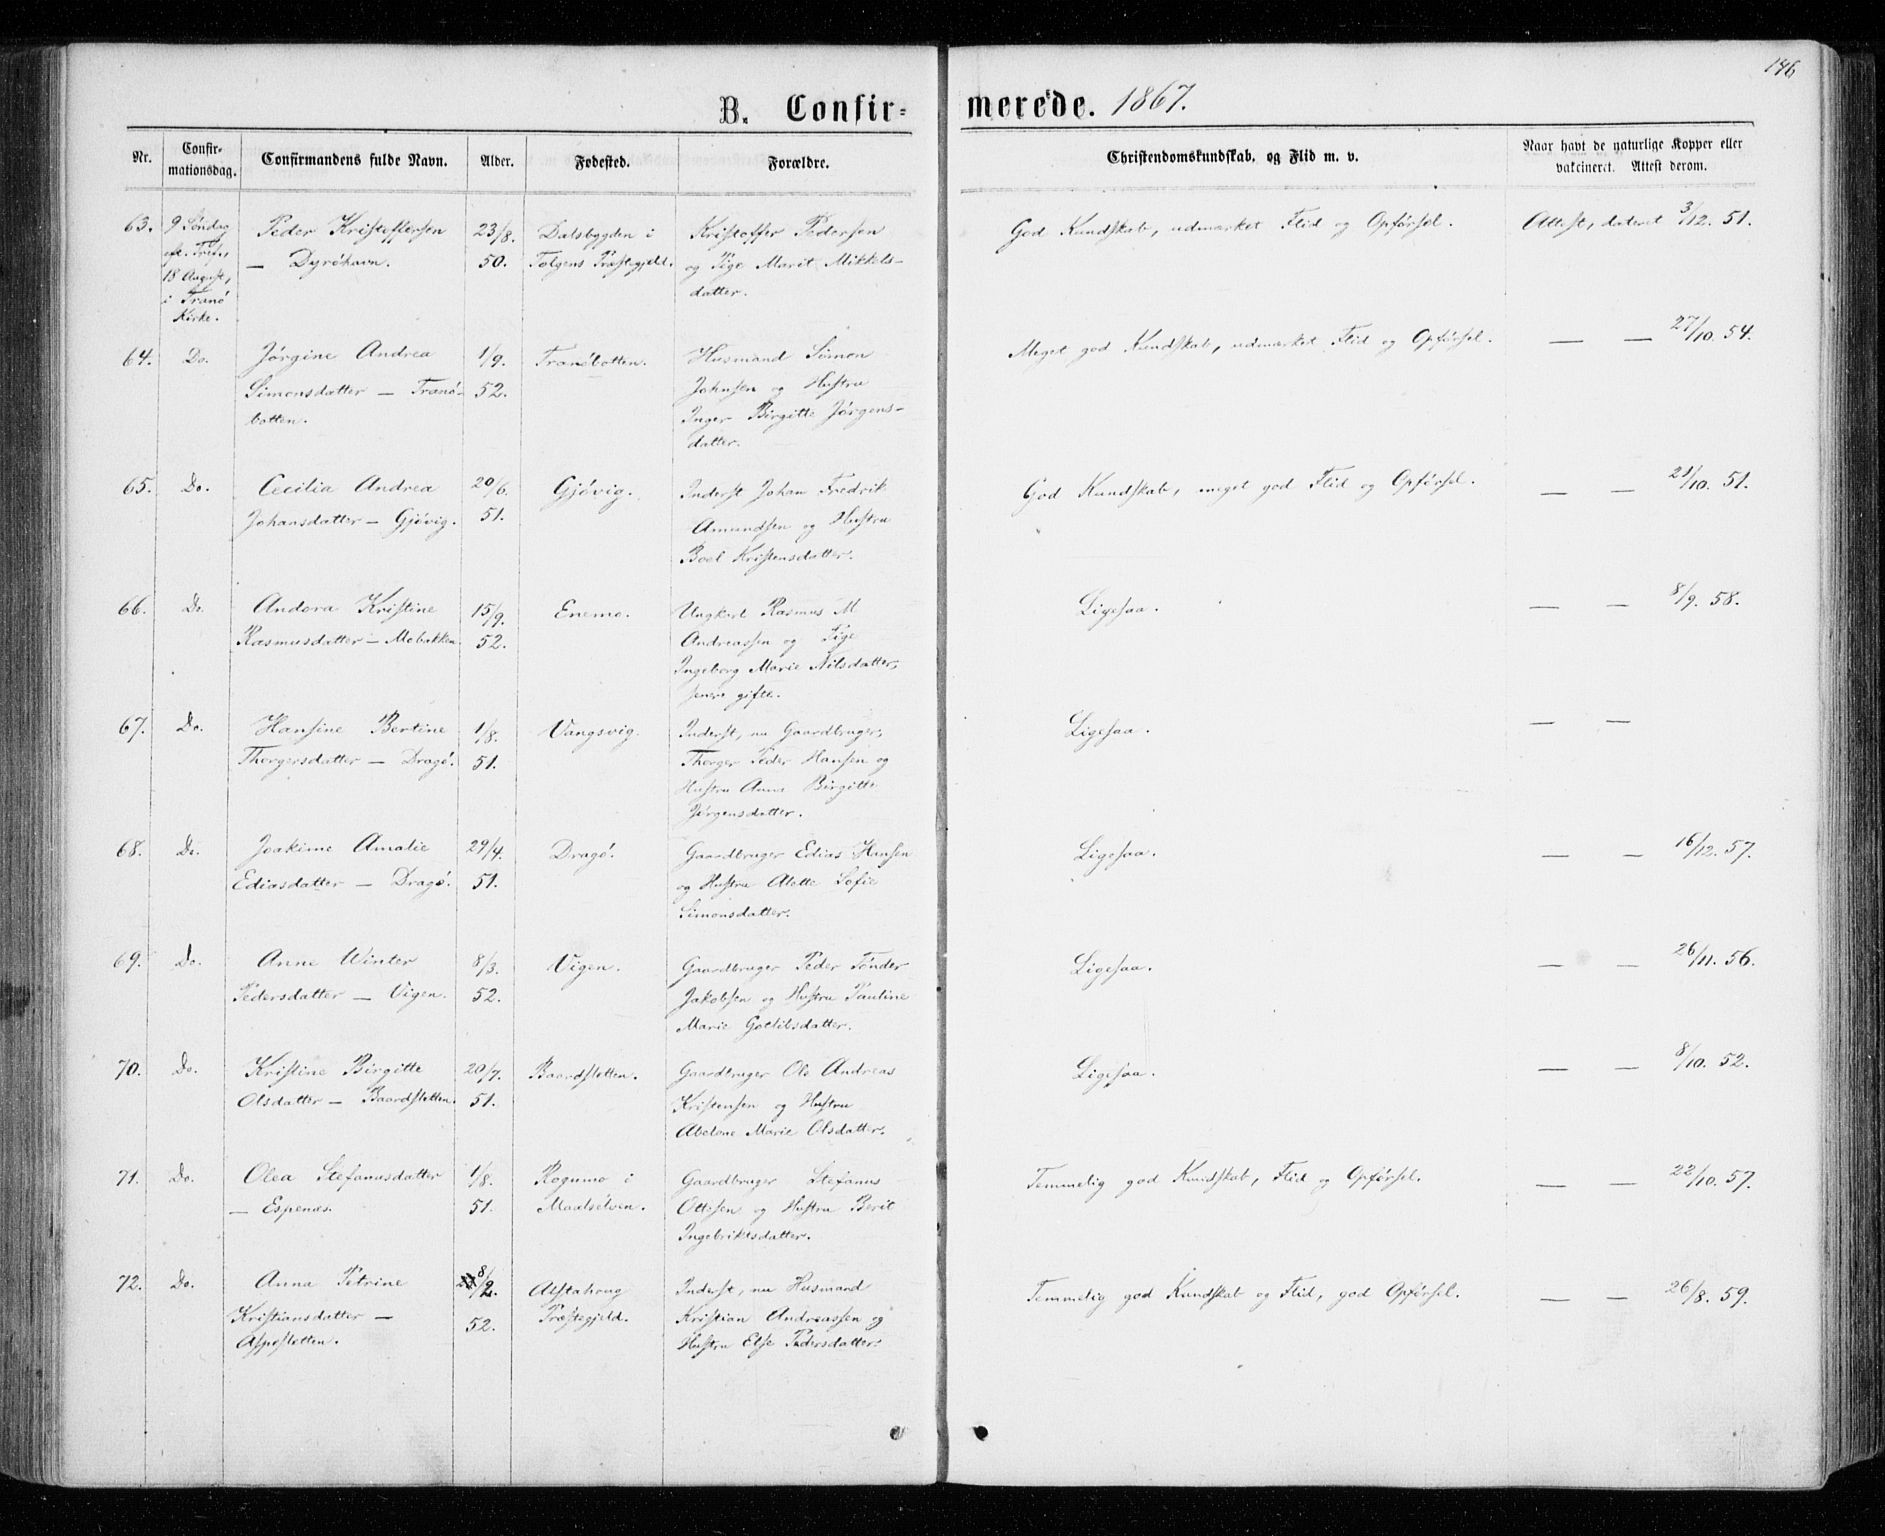 146
B. Confir- merede. 1867.
Nr. Confir-mationsdag. Confirmandens fulde Navn. Alder. Fødested. Forældre. Christendomskundskab, og Flid m. v. Naar havt de naturlige Kopper eller vakcineret. Attest derom.
63. 9 Søndag Peder Kristoffersen 23/8. Dalsbygden i Kristoffer Pedersen God Kundskab, udmærket Flid og Opførsel. Attest, dateret 3/12. 51.
eft. Tref., — Dyröhavn. 50. Tolgens Præstegjeld. og Pige Marit Mikkels-
18 August, datter.
i Tranö
Kirke.
64. Do. Jørgine Andrea 1/9. Tranöbotten. Husmand Simon Meget god Kundskab, udmærket Flid og Opførsel. — — 27/10. 54.
Simonsdatter — Tranö- 52. Johnsen og Hustru
botten. Inger Birgitte Jørgens-
datter.
65. Do. Cecilia Andrea 20/6. Gjövig. Inderst Johan Fredrik God Kundskab, meget god Flid og Opførsel. — — 21/10. 51.
Johansdatter — Gjövig. 51. Amundsen og Hustru
Boel Kristensdatter.
66. Do. Andora Kristine 15/9. Enemo. Ungkarl Rasmus M Ligesaa. — — 8/9. 58.
Rasmusdatter — Mobakken. 52. Andreassen og Pige
Ingeborg Marie Nilsdatter,
senere gifte.
67. Do. Hansine Bertine 1/8. Vangsvig. Inderst, nu Gaardbruger, Ligesaa. — —
Thorgersdatter — Dragö. 51. Thorger Peder Hansen og
Hustru Anne Birgitte
Jörgensdatter.
68. Do. Joakime Amalie 29/4. Dragö. Gaardbruger Edias Hansen Ligesaa. — — 16/12. 57.
Ediasdatter — Dragö. 51. og Hustru Alette Sofie
Simonsdatter.
69. Do. Anne Winter 8/3. Vigen. Gaardbruger Peder Tönder Ligesaa. — — 26/11. 56.
Pedersdatter — Vigen. 52. Jakobsen og Hustru Pauline
Marie Gotlibsdatter.
70. Do. Kristine Birgitte 20/7. Baardsletten. Gaardbruger Ole Andreas Ligesaa. — — 8/10. 52.
Olsdatter — Baardsletten. 51. Kristensen og Hustru
Abelone Marie Olsdatter.
71. Do. Olea Stefanusdatter 1/8. Rognmo i Gaardbruger Stefanus Temmelig god Kundskab, Flid og Opførsel. — — 22/10. 57.
— Espenæs. 51. Maalselven. Ottesen og Hustru Berit
Ingebriktsdatter.
72. Do. Anna Petrine 8/2. Alstahoug Inderst, nu Husmand Temmelig god Kundskab og Flid, god Opførsel. — — 26/8. 59.
Kristiansdatter — 52. Præstegjeld. Kristian Andreassen og
Aspesletten. Hustru Else Pedersdatter.